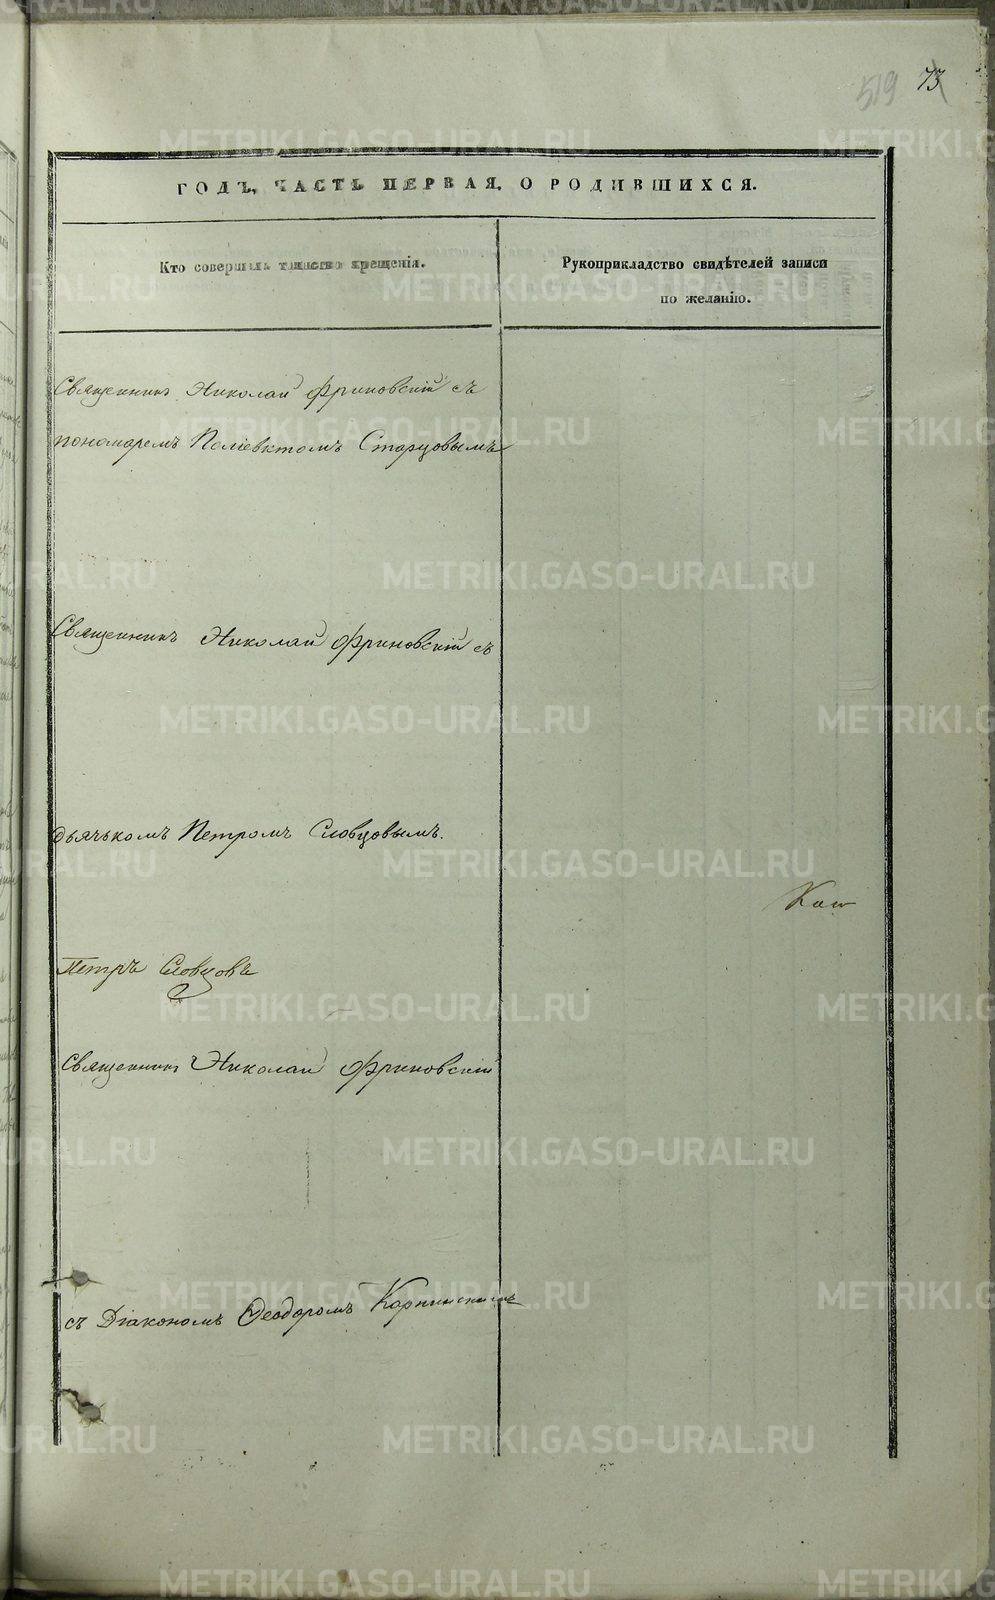 519 73
ГОДЪ, ЧАСТЬ ПЕРВАЯ, О РОДИВШИХСЯ.
Кто совершалъ таинство крещенія.
Рукоприкладство свидѣтелей записи
по желанію.
Священникъ Николай Фриновскій съ
пономаремъ Поліевктомъ Старцовымъ
Священникъ Николай Фриновскій съ
дьячькомъ Петромъ Словцовымъ.
Кош
Петръ Словцовъ
Священникъ Николай Фриновскій
съ Діакономъ Ѳеодоромъ Карпинскимъ
METRIKI.GASO-URAL.RU